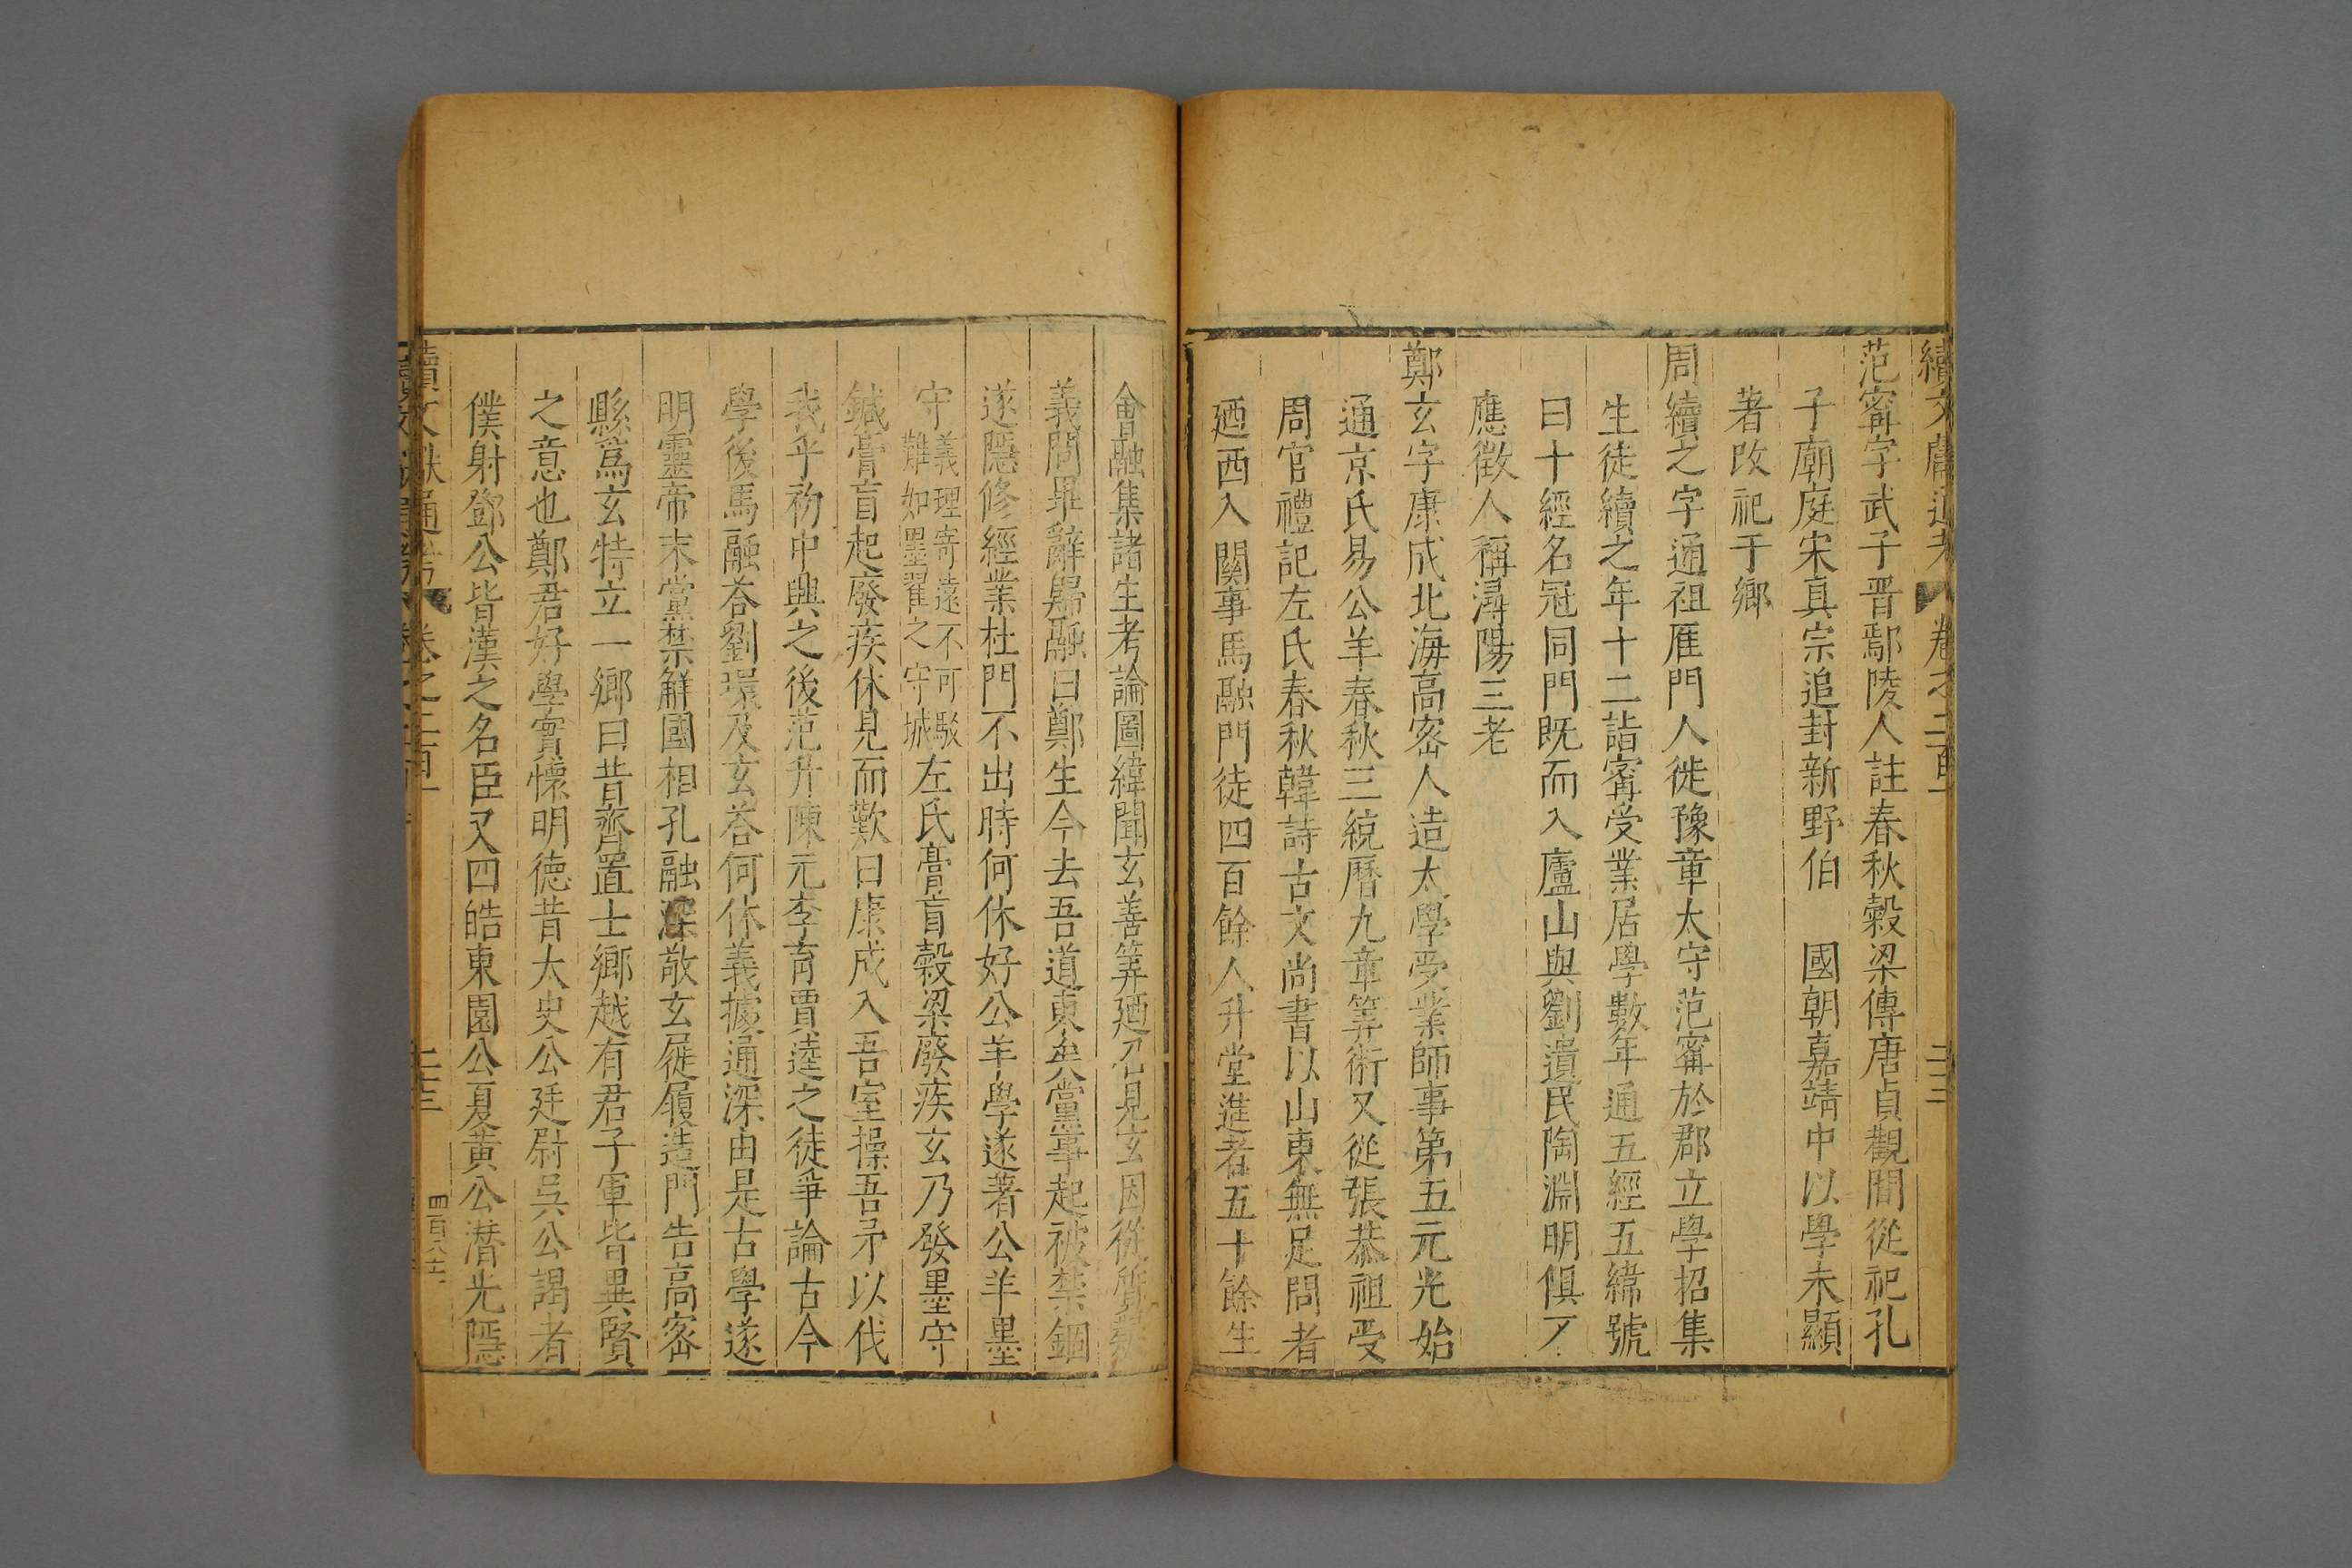 續文獻通考 卷之二百一 二三
范甯字武子晉鄢陵人註春秋榖梁傳唐貞觀間從祀孔
子廟庭宋真宗追封新野伯 國朝嘉靖中以學未顯
著改祀于鄉
周續之字通祖雁門人徙豫章太守范甯於郡立學招集
生徒續之年十二詣甯受業居學數年通五經五緯號
曰十經名冠同門既而入廬山與劉遺民陶淵明俱不
應徵人稱潯陽三老
鄭玄字康成北海高密人造太學受業師事第五元光始
通京氏易公羊春秋三統曆九章筭術又從張恭祖受
周官禮記左氏春秋韓詩古文尚書以山東無足問者
廼西入關事馬融門徒四百餘人升堂進者五十餘生
會融集諸生考論圖緯聞玄善筭廼召見玄因從質疑
義問畢辭歸融曰鄭生今去吾道東矣黨事起被禁錮
遂隱修經業杜門不出時何休好公羊學遂著公羊墨
守義理寄遠不可駁難如墨翟之守城左氏膏肓榖梁廢疾玄乃發墨守
鍼膏肓起廢疾休見而歎曰康成入吾室操吾矛以伐
我乎初中興之後范升陳元李育賈逵之徒爭論古今
學後馬融荅劉瓌及玄荅何休義據通深由是古學遂
明靈帝末黨禁觧國相孔融深敬玄屣履造門告高密
縣爲玄特立一鄉曰昔齊置士鄉越有君子軍皆異賢
之意也鄭君好學實懷明德昔太史公廷尉吳公謁者
僕射鄧公皆漢之名臣又四皓東園公夏黃公潛光隱
續文獻通考 卷之二百一 二三